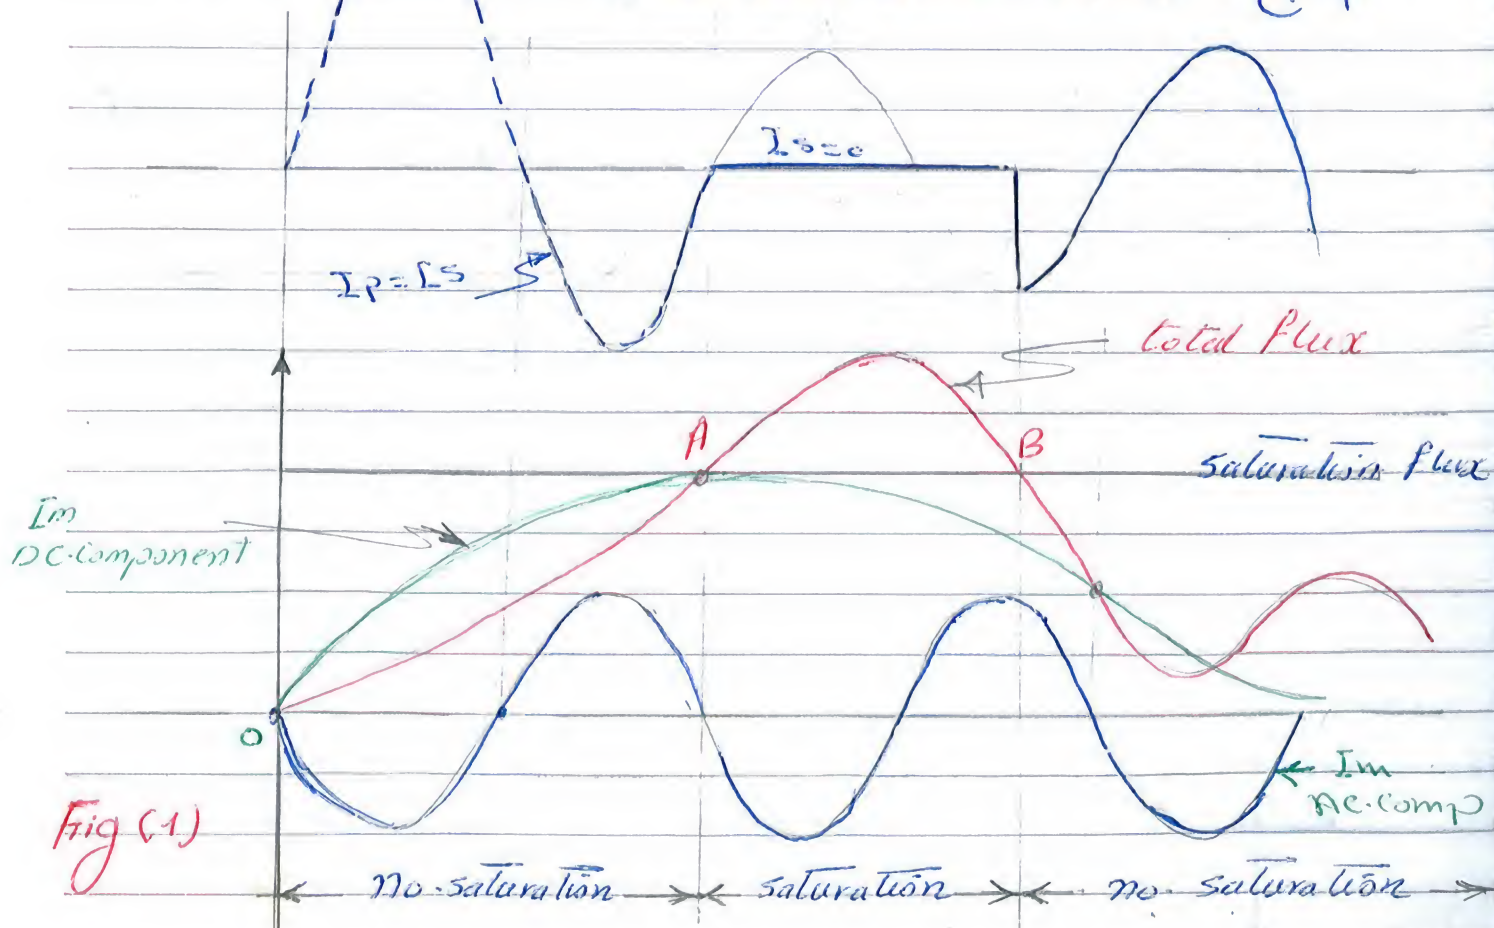 Is=o
Ip=Is
total flux
A
B
saturation flux
Im
DC.component
O
Im
AC.comp
Fig (1)
no.saturation
saturation
no. saturation